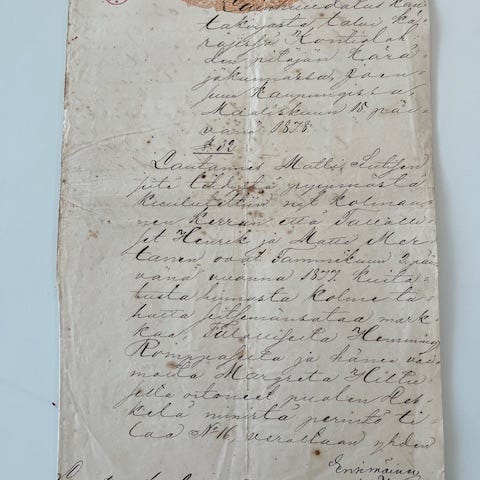 takirjasta talvi kä-
räjissä Kontiolah-
den pitäjän kärä-
jäkunnassa, Joen-
suun kaupungissa,
Maaliskuun 15 päi-
vänä 1878.
§ 32
Lautamies Matti
pyynnöstä
kuulutettiin nyt kolman-
nen kerran että Talolli-
set Henrik ja Matti Mer-
tanen ovat Tammikuun 3 päi-
vänä vuonna 1877 kuita-
tusta hinnasta kolme tu-
hatta seitsemänsataa mark-
kaa Hemming
Romppaselta ja hänen vai-
molta Margreta Hiltu-
selta ostaneet puolen
kelä nimistä perintö ti-
laa № 16, verollaan yhden
Ensimäinen